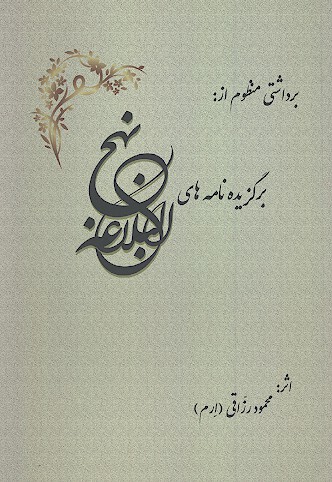 برداشتی منظوم از:
برگزیده نامه های
نهج البلاغه
اثر:
محمود رزّاقی (اِرم)